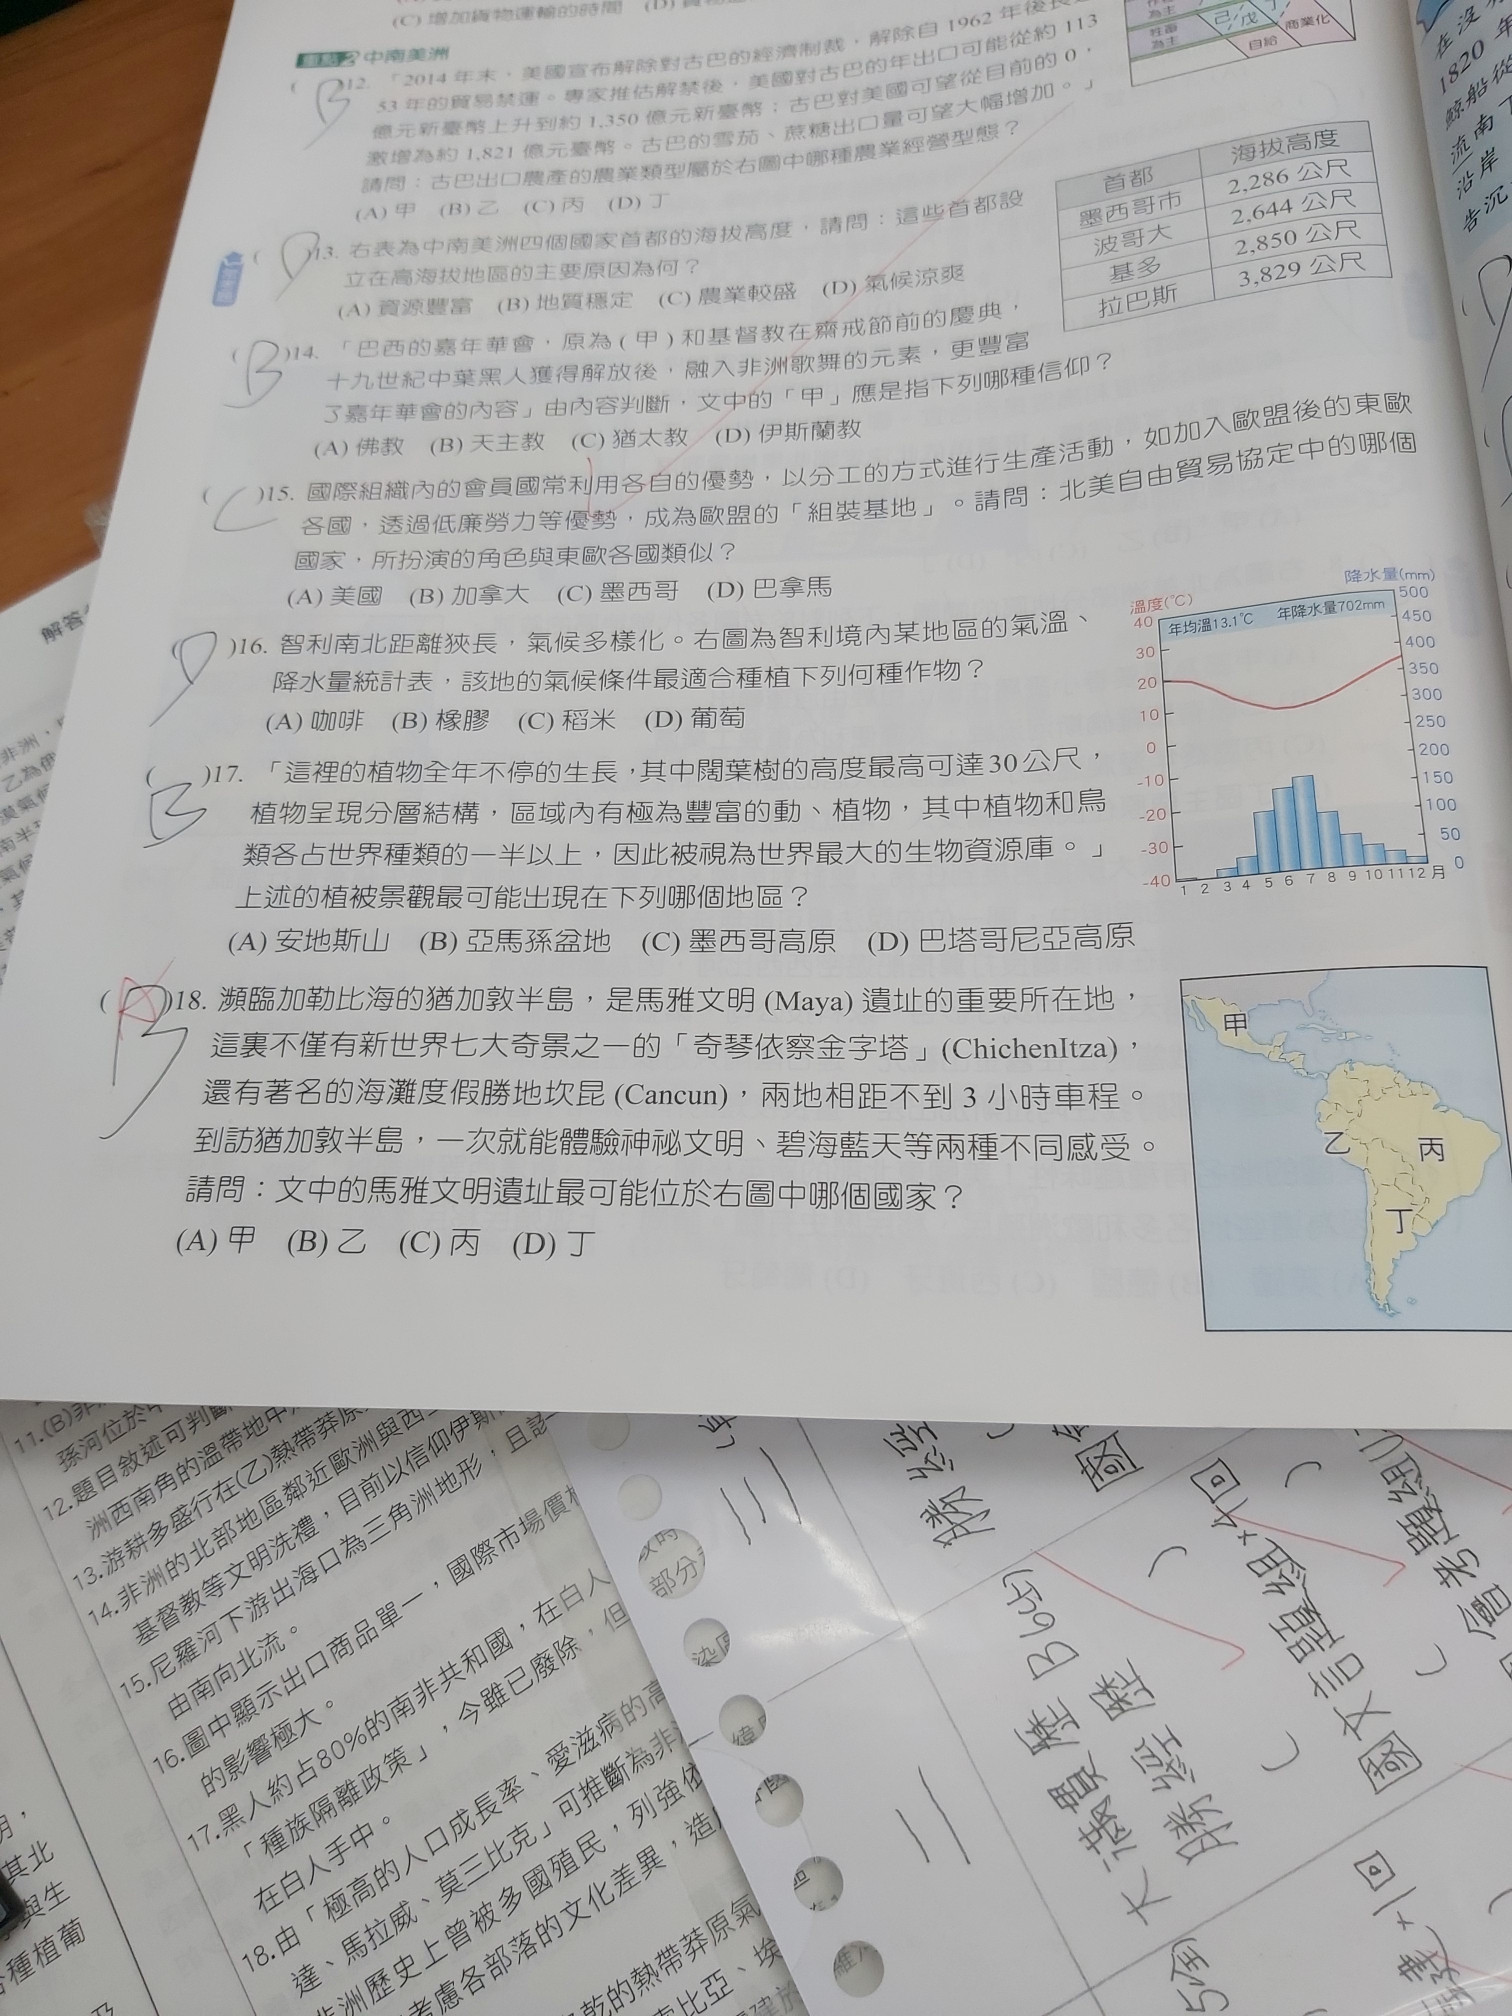 (C) 增加貨物運輸的時間
重點2 中南美洲
(B)12. 「2014 年末，美國宣布解除對古巴的經濟制裁，解除自 1962 年後長達
53 年的貿易禁運。專家推估解禁後，美國對古巴的年出口可能從約 113
億元新臺幣上升到約 1,350 億元新臺幣；古巴對美國可望從目前的 0，
激增為約 1,821 億元臺幣。古巴的雪茄、蔗糖出口量可望大幅增加。」
請問：古巴出口農產的農業類型屬於右圖中哪種農業經營型態？
(A) 甲 (B) 乙 (C) 丙 (D) 丁
為主
牲畜
為主
己
戊
丁
自給
商業化
(D)13. 右表為中南美洲四個國家首都的海拔高度，請問：這些首都設
立在高海拔地區的主要原因為何？
(A) 資源豐富 (B) 地質穩定 (C) 農業較盛 (D) 氣候涼爽
首都 海拔高度
墨西哥市 2,286 公尺
波哥大 2,644 公尺
基多 2,850 公尺
拉巴斯 3,829 公尺
(B)14. 「巴西的嘉年華會，原為 ( 甲 ) 和基督教在齋戒節前的慶典，
十九世紀中葉黑人獲得解放後，融入非洲歌舞的元素，更豐富
了嘉年華會的內容」由內容判斷，文中的「甲」應是指下列哪種信仰？
(A) 佛教 (B) 天主教 (C) 猶太教 (D) 伊斯蘭教
(C)15. 國際組織內的會員國常利用各自的優勢，以分工的方式進行生產活動，如加入歐盟後的東歐
各國，透過低廉勞力等優勢，成為歐盟的「組裝基地」。請問：北美自由貿易協定中的哪個
國家，所扮演的角色與東歐各國類似？
(A) 美國 (B) 加拿大 (C) 墨西哥 (D) 巴拿馬
(D)16. 智利南北距離狹長，氣候多樣化。右圖為智利境內某地區的氣溫、
降水量統計表，該地的氣候條件最適合種植下列何種作物？
(A) 咖啡 (B) 橡膠 (C) 稻米 (D) 葡萄
溫度(℃)
降水量(mm)
年均溫13.1℃ 年降水量702mm
40
30
20
10
0
-10
-20
-30
-40
500
450
400
350
300
250
200
150
100
50
0
1 2 3 4 5 6 7 8 9 10 11 12 月
(B)17. 「這裡的植物全年不停的生長，其中闊葉樹的高度最高可達30公尺，
植物呈現分層結構，區域內有極為豐富的動、植物，其中植物和鳥
類各占世界種類的一半以上，因此被視為世界最大的生物資源庫。」
上述的植被景觀最可能出現在下列哪個地區？
(A) 安地斯山 (B) 亞馬孫盆地 (C) 墨西哥高原 (D) 巴塔哥尼亞高原
(B A)18. 瀕臨加勒比海的猶加敦半島，是馬雅文明 (Maya) 遺址的重要所在地，
這裏不僅有新世界七大奇景之一的「奇琴依察金字塔」(ChichenItza)，
還有著名的海灘度假勝地坎昆 (Cancun)，兩地相距不到 3 小時車程。
到訪猶加敦半島，一次就能體驗神祕文明、碧海藍天等兩種不同感受。
請問：文中的馬雅文明遺址最可能位於右圖中哪個國家？
(A) 甲 (B) 乙 (C) 丙 (D) 丁
甲
乙
丙
丁
在沒
1820 年
鯨船從
流南下
沿岸
告沉
解答
11.(B)非
孫河位於
12.題目敘述可判斷
洲西南角的溫帶地中
13.游耕多盛行在(乙)熱帶莽原
14.非洲的北部地區鄰近歐洲與西
基督教等文明洗禮，目前以信仰伊斯
15.尼羅河下游出海口為三角洲地形，且該
由南向北流。
16.圖中顯示出口商品單一，國際市場價格
的影響極大。
17.黑人約占80%的南非共和國，在白人
「種族隔離政策」，今雖已廢除，但
在白人手中。
18.由「極高的人口成長率、愛滋病的高
達、馬拉威、莫三比克」可推斷為非
非洲歷史上曾被多國殖民，列強依
考慮各部落的文化差異，造
乾的熱帶莽原氣
其北
與生
種植葡
部分
三
二
國
大滿貫 歷 B6出
國文 言